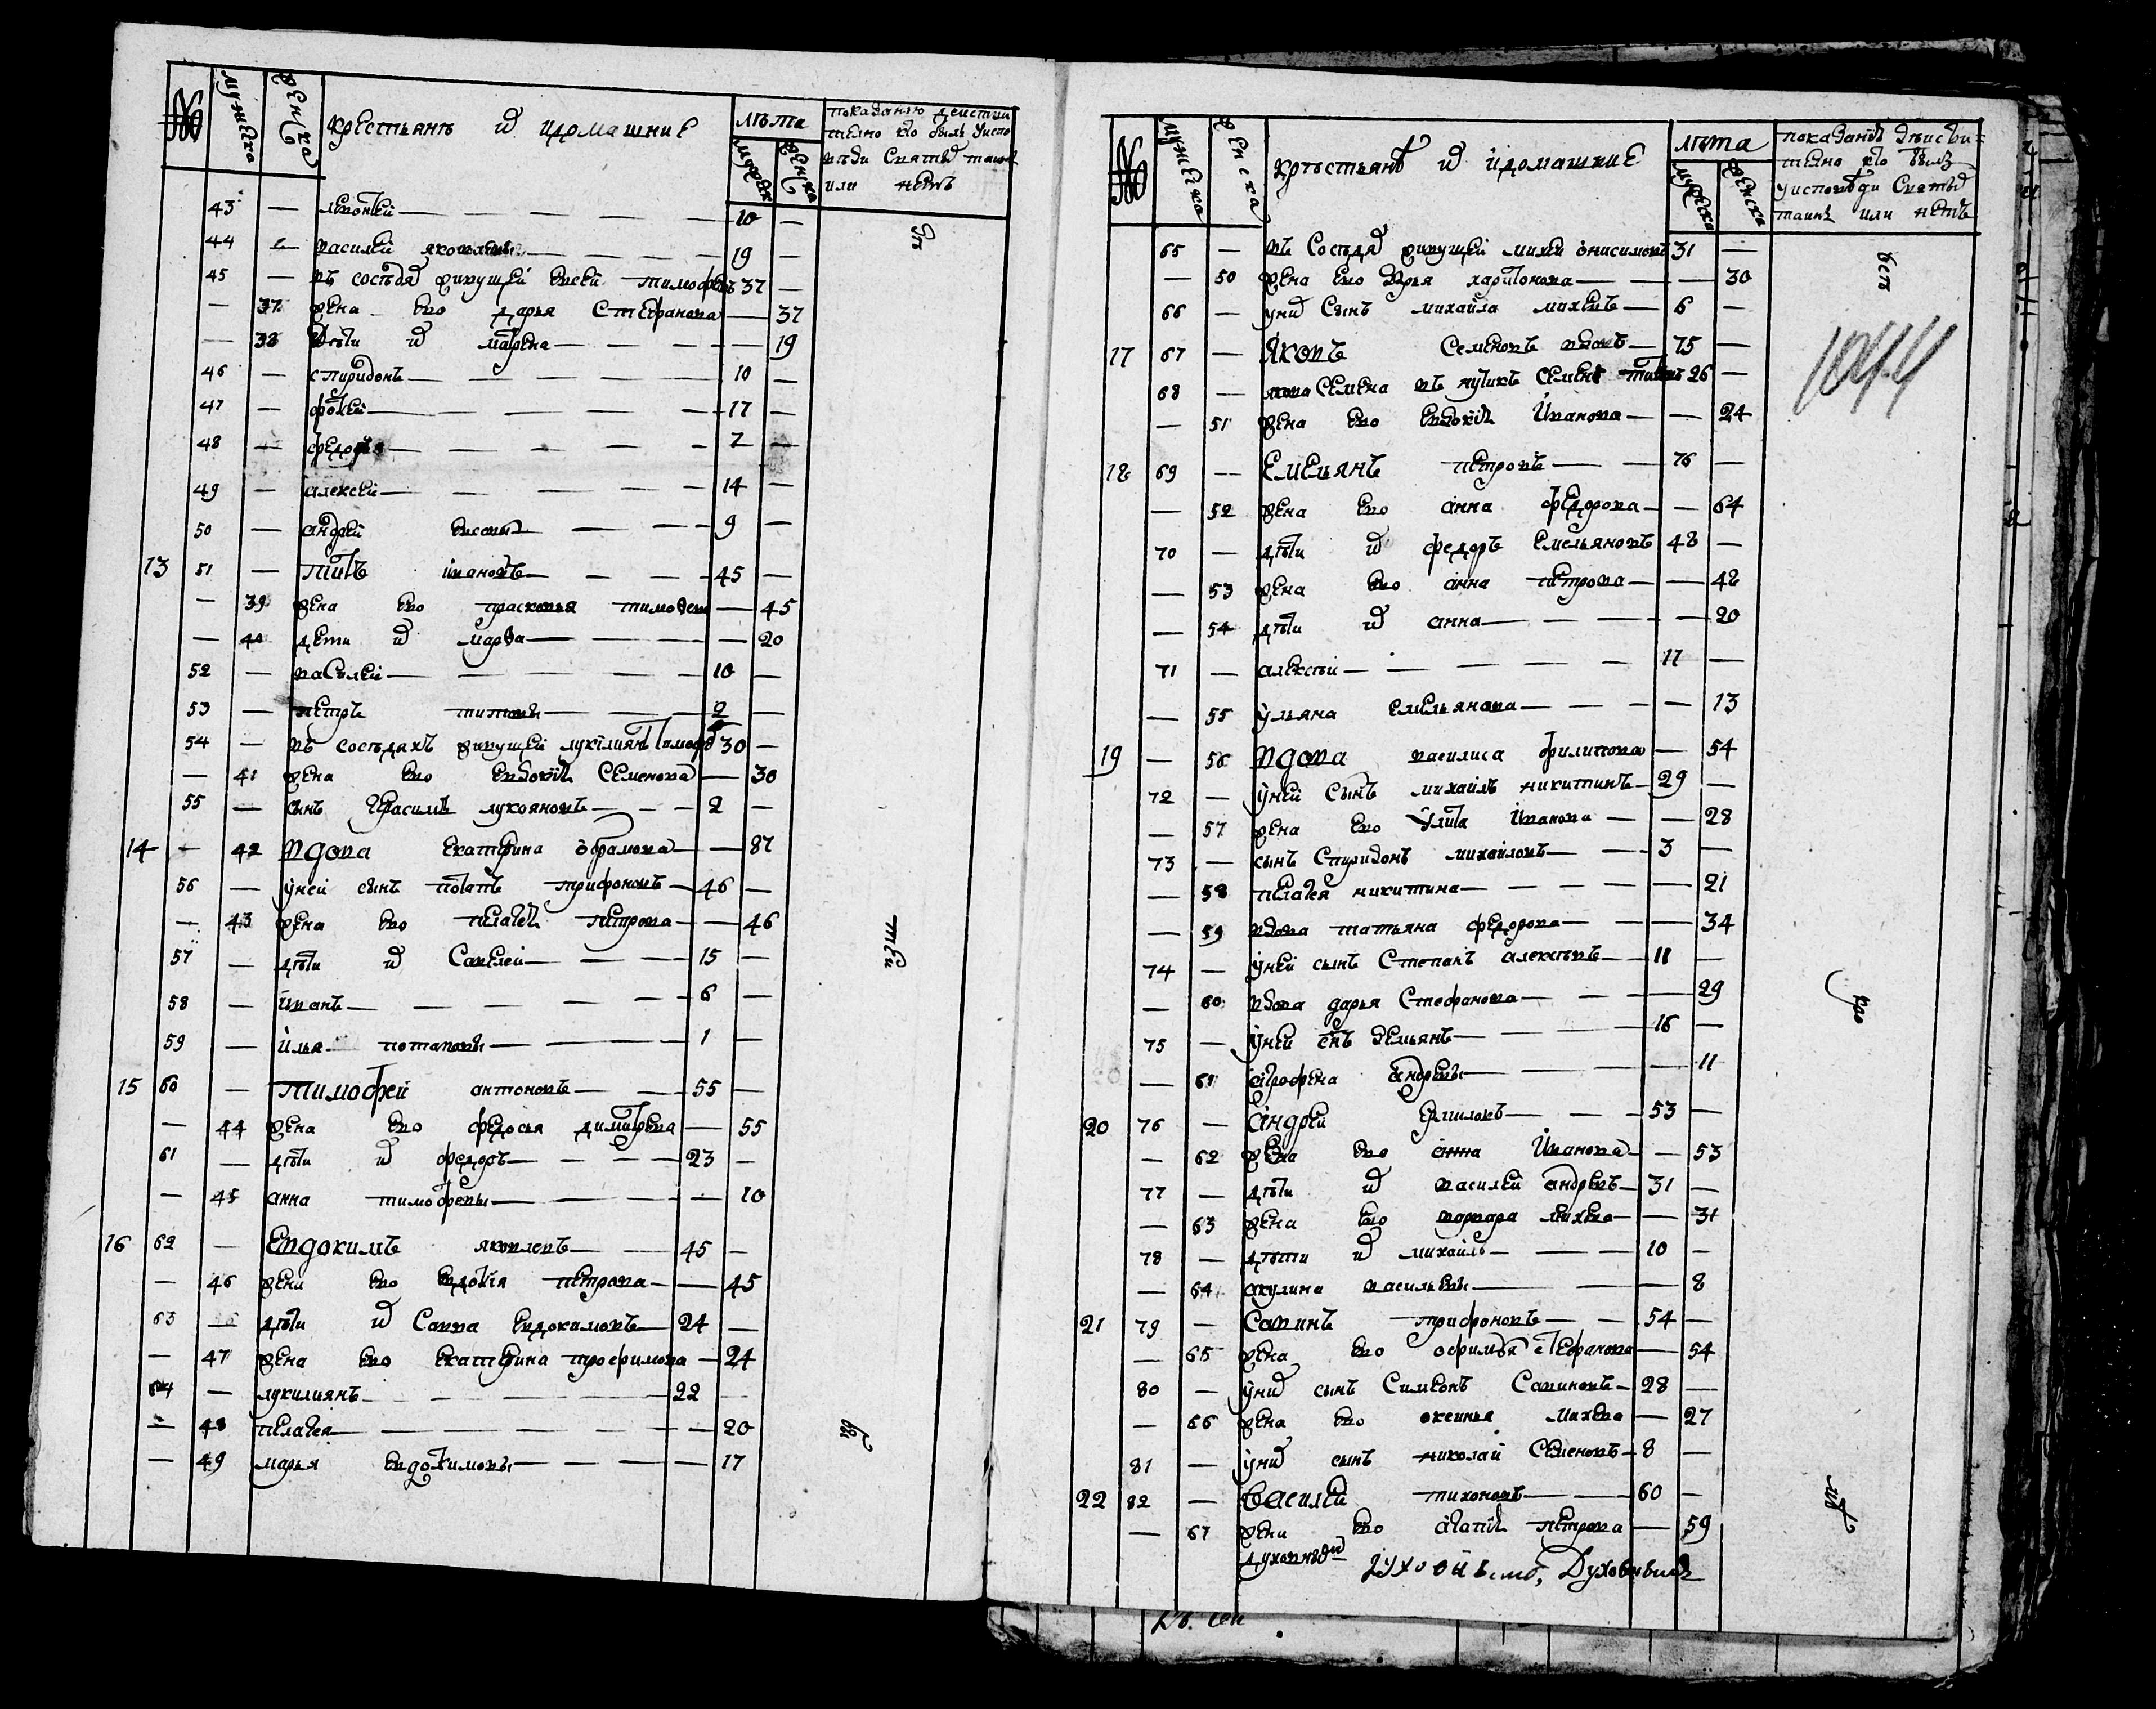 № мужеска женска крестьянъ и ихъ домашние лѣта мужеск женска показанию действи
телно кто былъ уиспо
вѣди святыхъ таинъ
или нетъ
43 — леонтей — 10 —
44 — василей яковлевы — 19 —
45 — въ соседяхъ живущей евсей тимофеевъ 37 —
— 37 жена ево дарья стефанова — 37
— 38 дѣти ихъ матрена — 19
46 — спиридонъ — 10 —
47 — фотей — 17 —
48 — федосей — 7 —
49 — алексей — 14 —
50 — андрей евсевы — 9 —
13 51 — титъ ивановъ — 45 —
— 39 жена ево прасковья тимофеева — 45
— 40 дети ихъ марфа — 20
52 — василей — 10 —
53 — петръ титовы — 2 —
54 — въ соседяхъ живущей лукиянъ тимофе 30 —
— 41 жена ево евдокия семенова — 30
55 — сынъ герасимъ лукояновъ — 2 —
14 — 42 вдова екатерина абрамова — 87
56 — у ней сынъ потапъ трифоновъ — 46 —
— 43 жена ево пелагея петрова — 46
57 — дѣти ихъ савелей — 15 —
58 — иванъ — 6 —
59 — илья потаповы — 1 —
15 60 — тимофей антоновъ — 55 —
— 44 жена ево федосья димитрева — 55
61 — дѣти ихъ федоръ — 23 —
— 45 анна тимофеевы — 10
16 62 — евдокимъ яковлевъ — 45 —
— 46 жена ево евдокия петрова — 45
63 — дѣти ихъ савва евдокимовъ — 24 —
— 47 жена ево екатерина трофимова — 24
64 — лукилиянъ — 22 —
— 48 пелагея — 20
— 49 марья евдокимовы — 17
тей
№ мужеска женска крѣстьянъ и ихъ домашние лѣта мужеска женска показанїя дѣистви=
телно кто былъ
уисповѣди святыхъ
таинъ или нетъ
65 — въ соседяхъ живущей михей онисимовъ 31 —
— 50 жена ево дарья харитонова — 30
66 — у нихъ сынъ михайла михеевъ — 6 —
17 67 — яковъ семеновъ вдовъ — 75 —
68 — семена внучикъ семенъ титовъ 26 —
— 51 жена ево евдокия иванова — 24
18 69 — емельянъ петровъ — 76 —
— 52 жена ево анна федорова — 64
70 — дѣти ихъ федоръ емельяновъ 48 —
— 53 жена ево анна петрова — 48
— 54 дѣти ихъ анна — 20
71 — алексѣй — 17 —
— 55 ульяна емельянова — 13
19 — 56 вдова василиса филипова — 54
72 — у ней сынъ михаилъ никитинъ — 29 —
— 57 жена ево улита иванова — 28
73 — сынъ спиридонъ михайловъ — 3 —
— 58 пелагея никитина — 21
— 59 вдова татьяна федорова — 34
74 — у ней сынъ степанъ алексѣевъ — 11 —
— 60 вдова дарья стефанова — 29
75 — у ней снъ демьянъ — 16 —
— 61 аграфена андреевы — 11
20 76 — андрей ермиловъ — 53 —
— 62 жена ево анна иванова — 53
77 — дѣти ихъ василей андреевъ — 31 —
— 63 жена ево варвара михеева — 31
78 — дѣти ихъ михайлъ — 10 —
— 64 акулина васильевы — 8
21 79 — савинъ трифоновъ — 54 —
— 65 жена ево афимья стефанова — 54
80 — у нихъ сынъ симеонъ савиновъ — 28 —
— 66 жена ево оксинья михеева — 27
81 — у нихъ сынъ николай семеновъ — 8 —
22 82 — василей тихоновъ — 60 —
— 67 жена ево агапия петрова — 59
1044